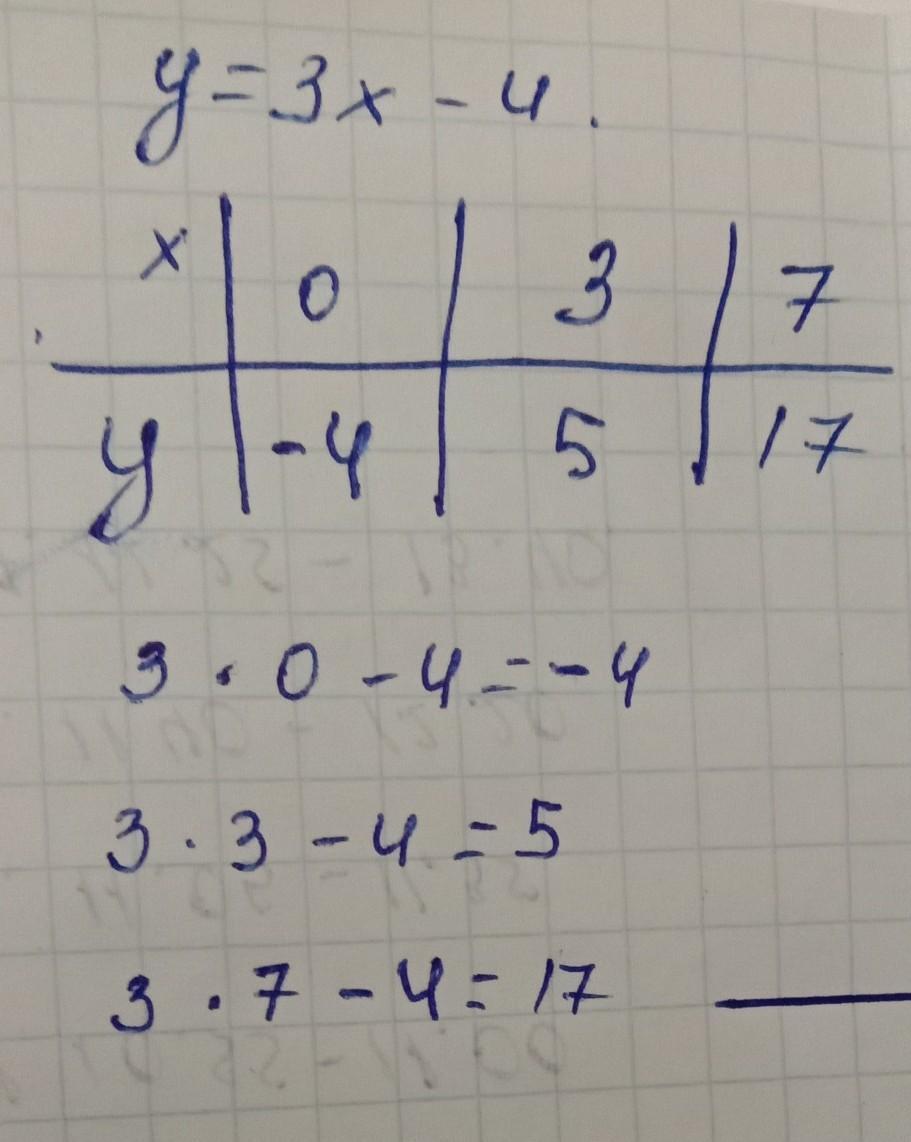 y = 3x - 4.
x | 0 | 3 | 7
y | -4 | 5 | 17
3 · 0 - 4 = -4
3 · 3 - 4 = 5
3 · 7 - 4 = 17